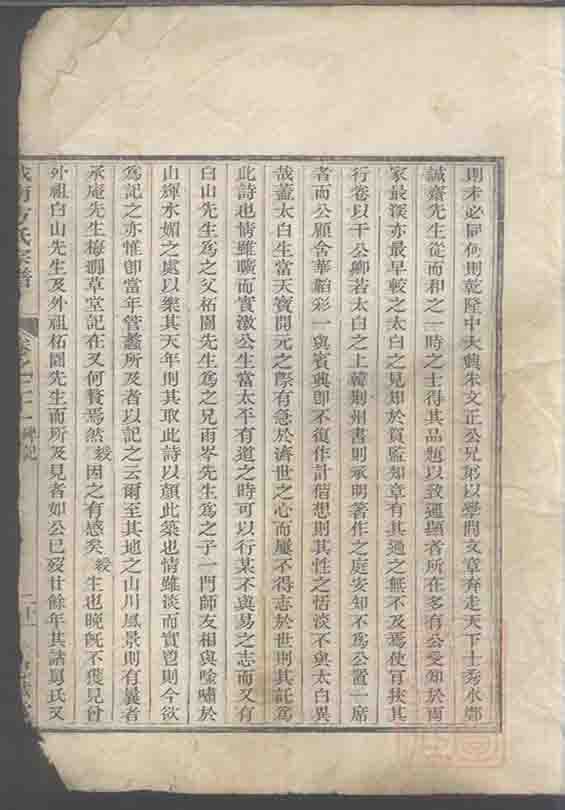 則未必同何則乾隆中大興朱文正公兄弟以學問文章奔走天下士秀水鄭
誠齋先生從而和之一時之士得其品題以致通顯者所在多有公受知於兩
家最深亦最早較之太白之見知於賀監知章有其過之無不及焉使百挾其
行卷以干公卿若太白之上韓荆州書則承明著作之庭安知不為公置一席
者而公顧舍華韜彩一與賓興卽不復作計偕想則其性之恬淡不與太白異
哉蓋太白生當天寶開元之際有急於濟世之心而屢不得志於世則其託為
此詩也情雖曠而實激公生當太平有道之時可以行某不與易之志而又有
白山先生為之父柘園先生為之兄雨岑先生為之子一門師友相與唫嘯於
山輝水媚之處以樂其天年則其取此詩以顏此築也情雖淡而實鬯則今欲
為記之亦惟卽當年管蠡所及者以記之云爾至其地之山川風景則有曩者
承庵先生梅㵎草堂記在又何贅焉然綬因之有感矣綬生也晚旣不獲見曾
外祖白山先生及外祖柘園先生而所及見者如公已歿廿餘年其諸舅氏又
方氏宗譜
卷之 碑記